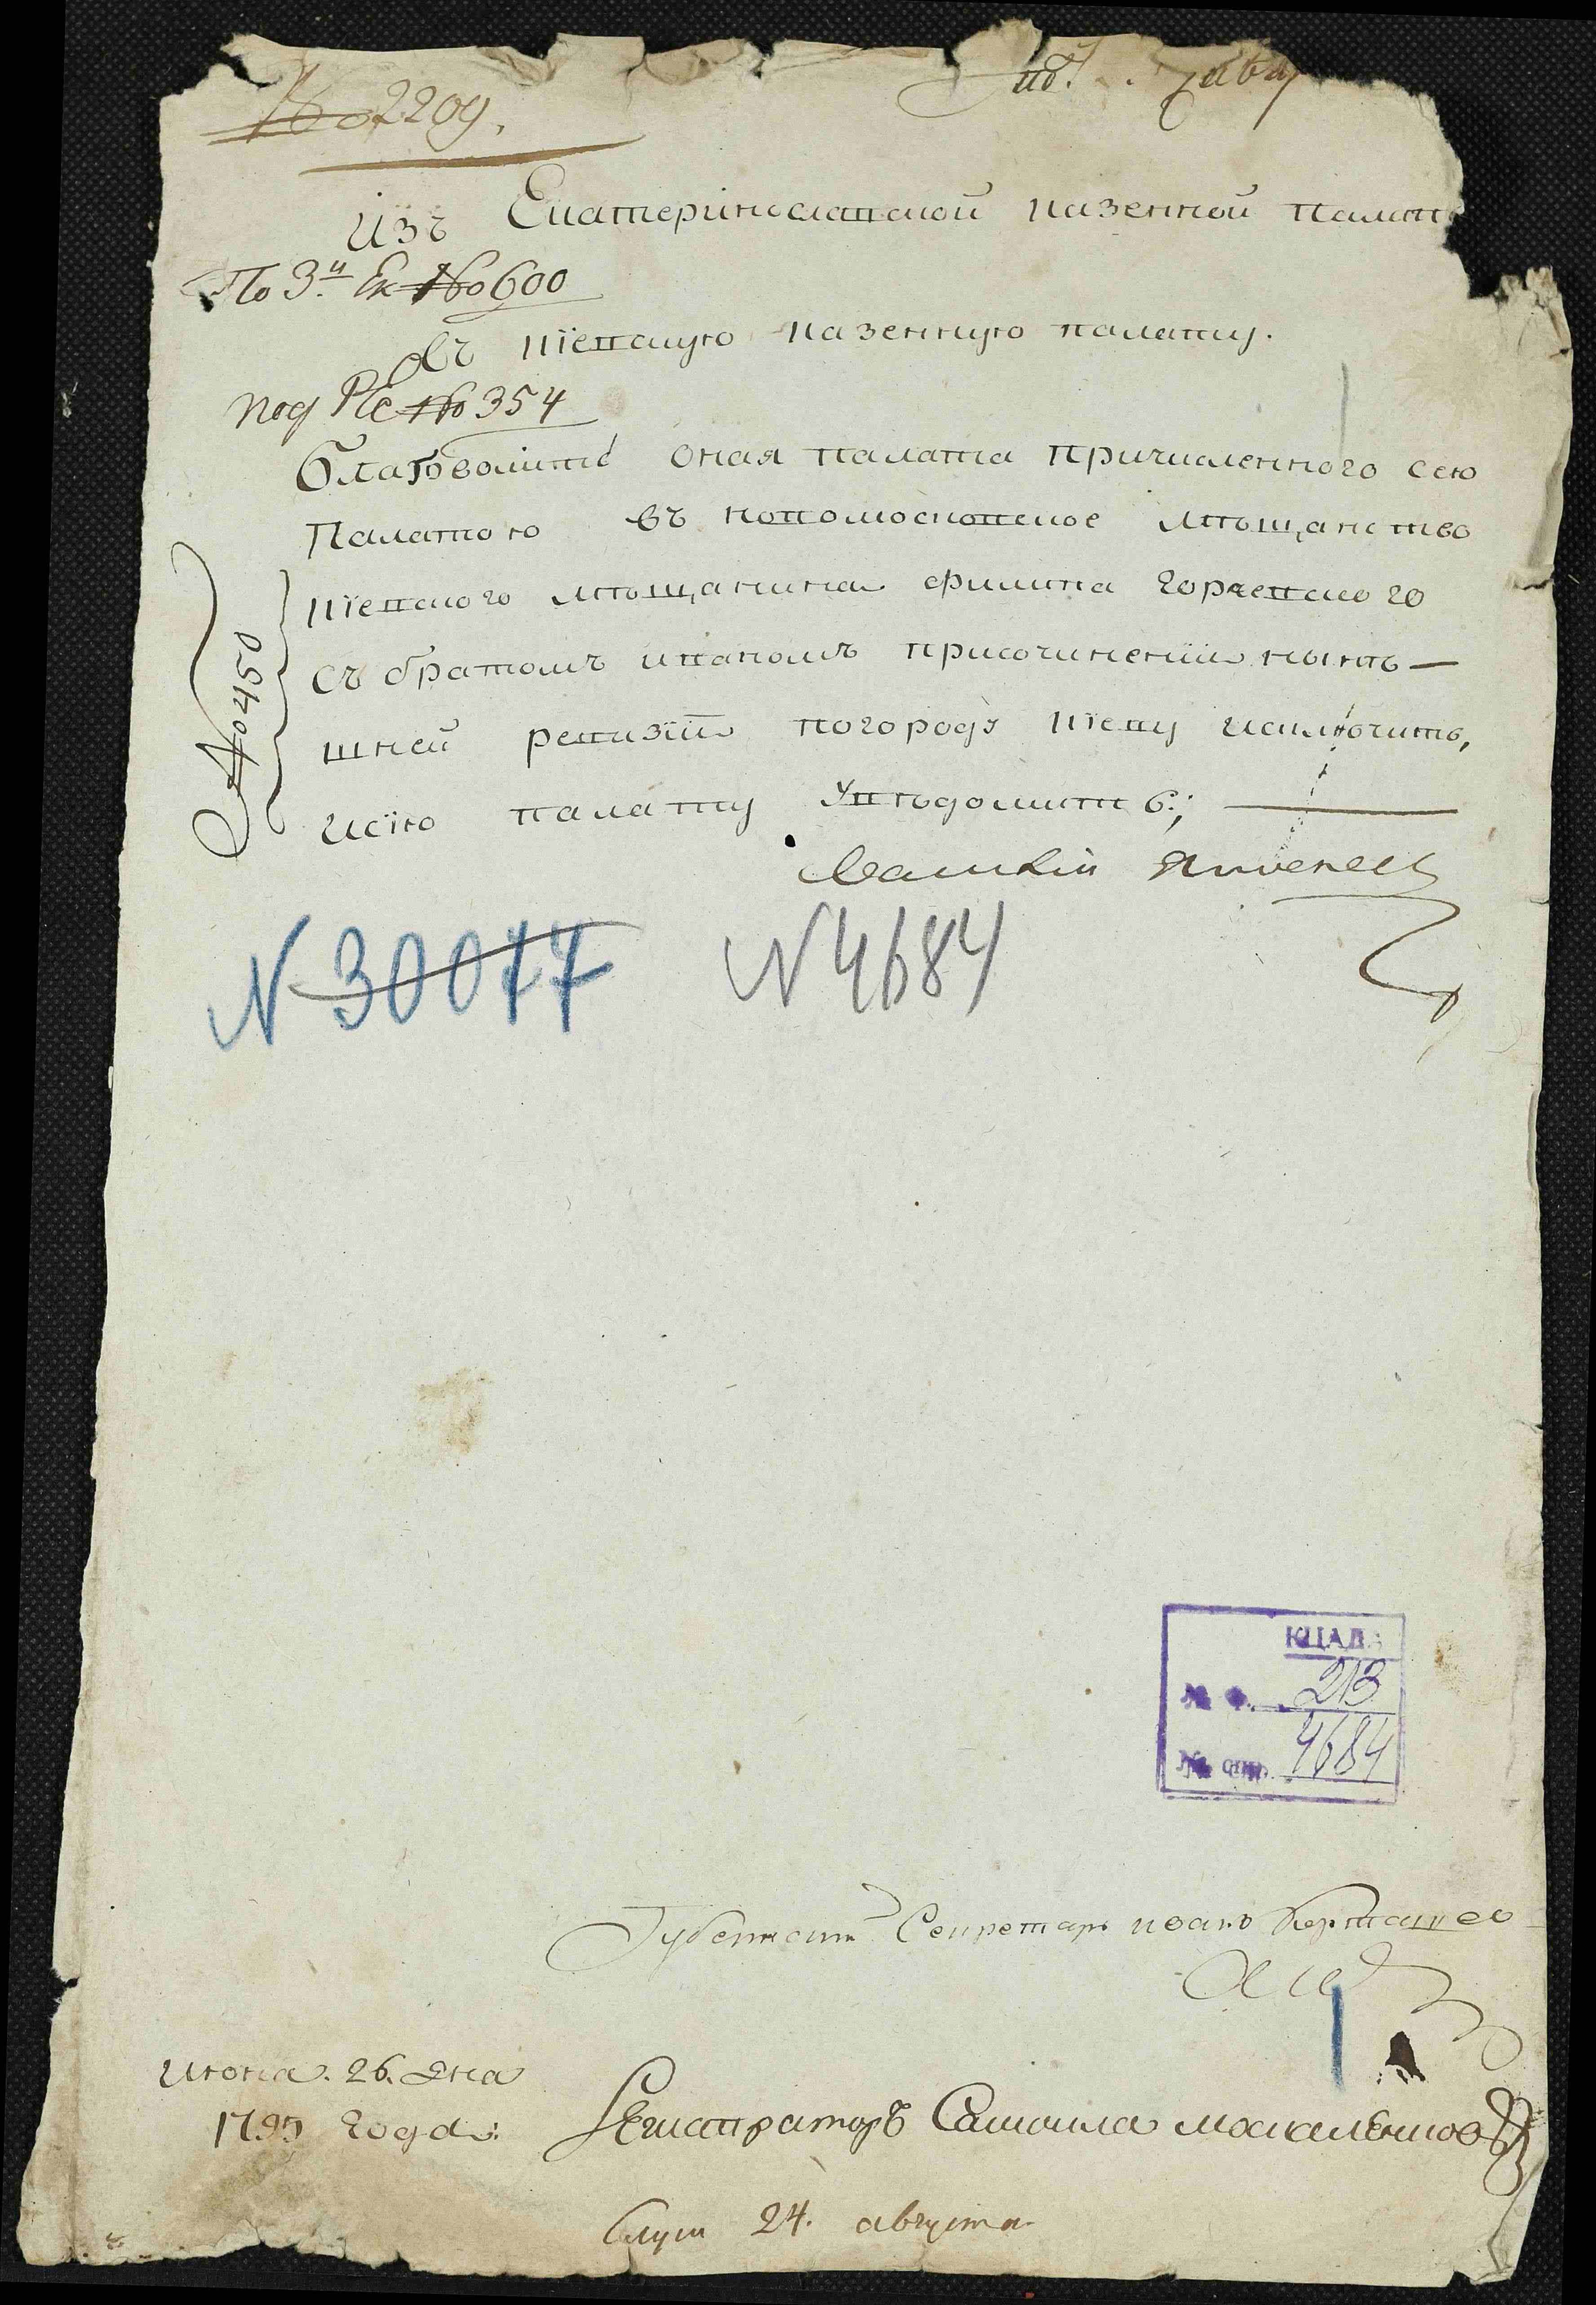 № 2209.
Изъ Екатеринославской казенной палат
По 3й Ек № 600
въ кіевскую казенную палату.
под Ре № 354
благоволитъ оная палата причисленного сею
Палатою въ новомосковское мѣщанство
кіевского мѣщанина филипа горževского
съ братомъ иваномъ присочиненіи нынѣ—
шней ревизіи погороду кіеву исключить,
исїю палату увѣдомить;
№ 450
N 30077 N 4684
КЦАДА
№ Ф. 213
№ спр. 4684
Губернскій Секретарь иванъ
июня. 26. дня
1795 года:
Регистраторъ Самоила москаленковъ
Слуш 24. августа